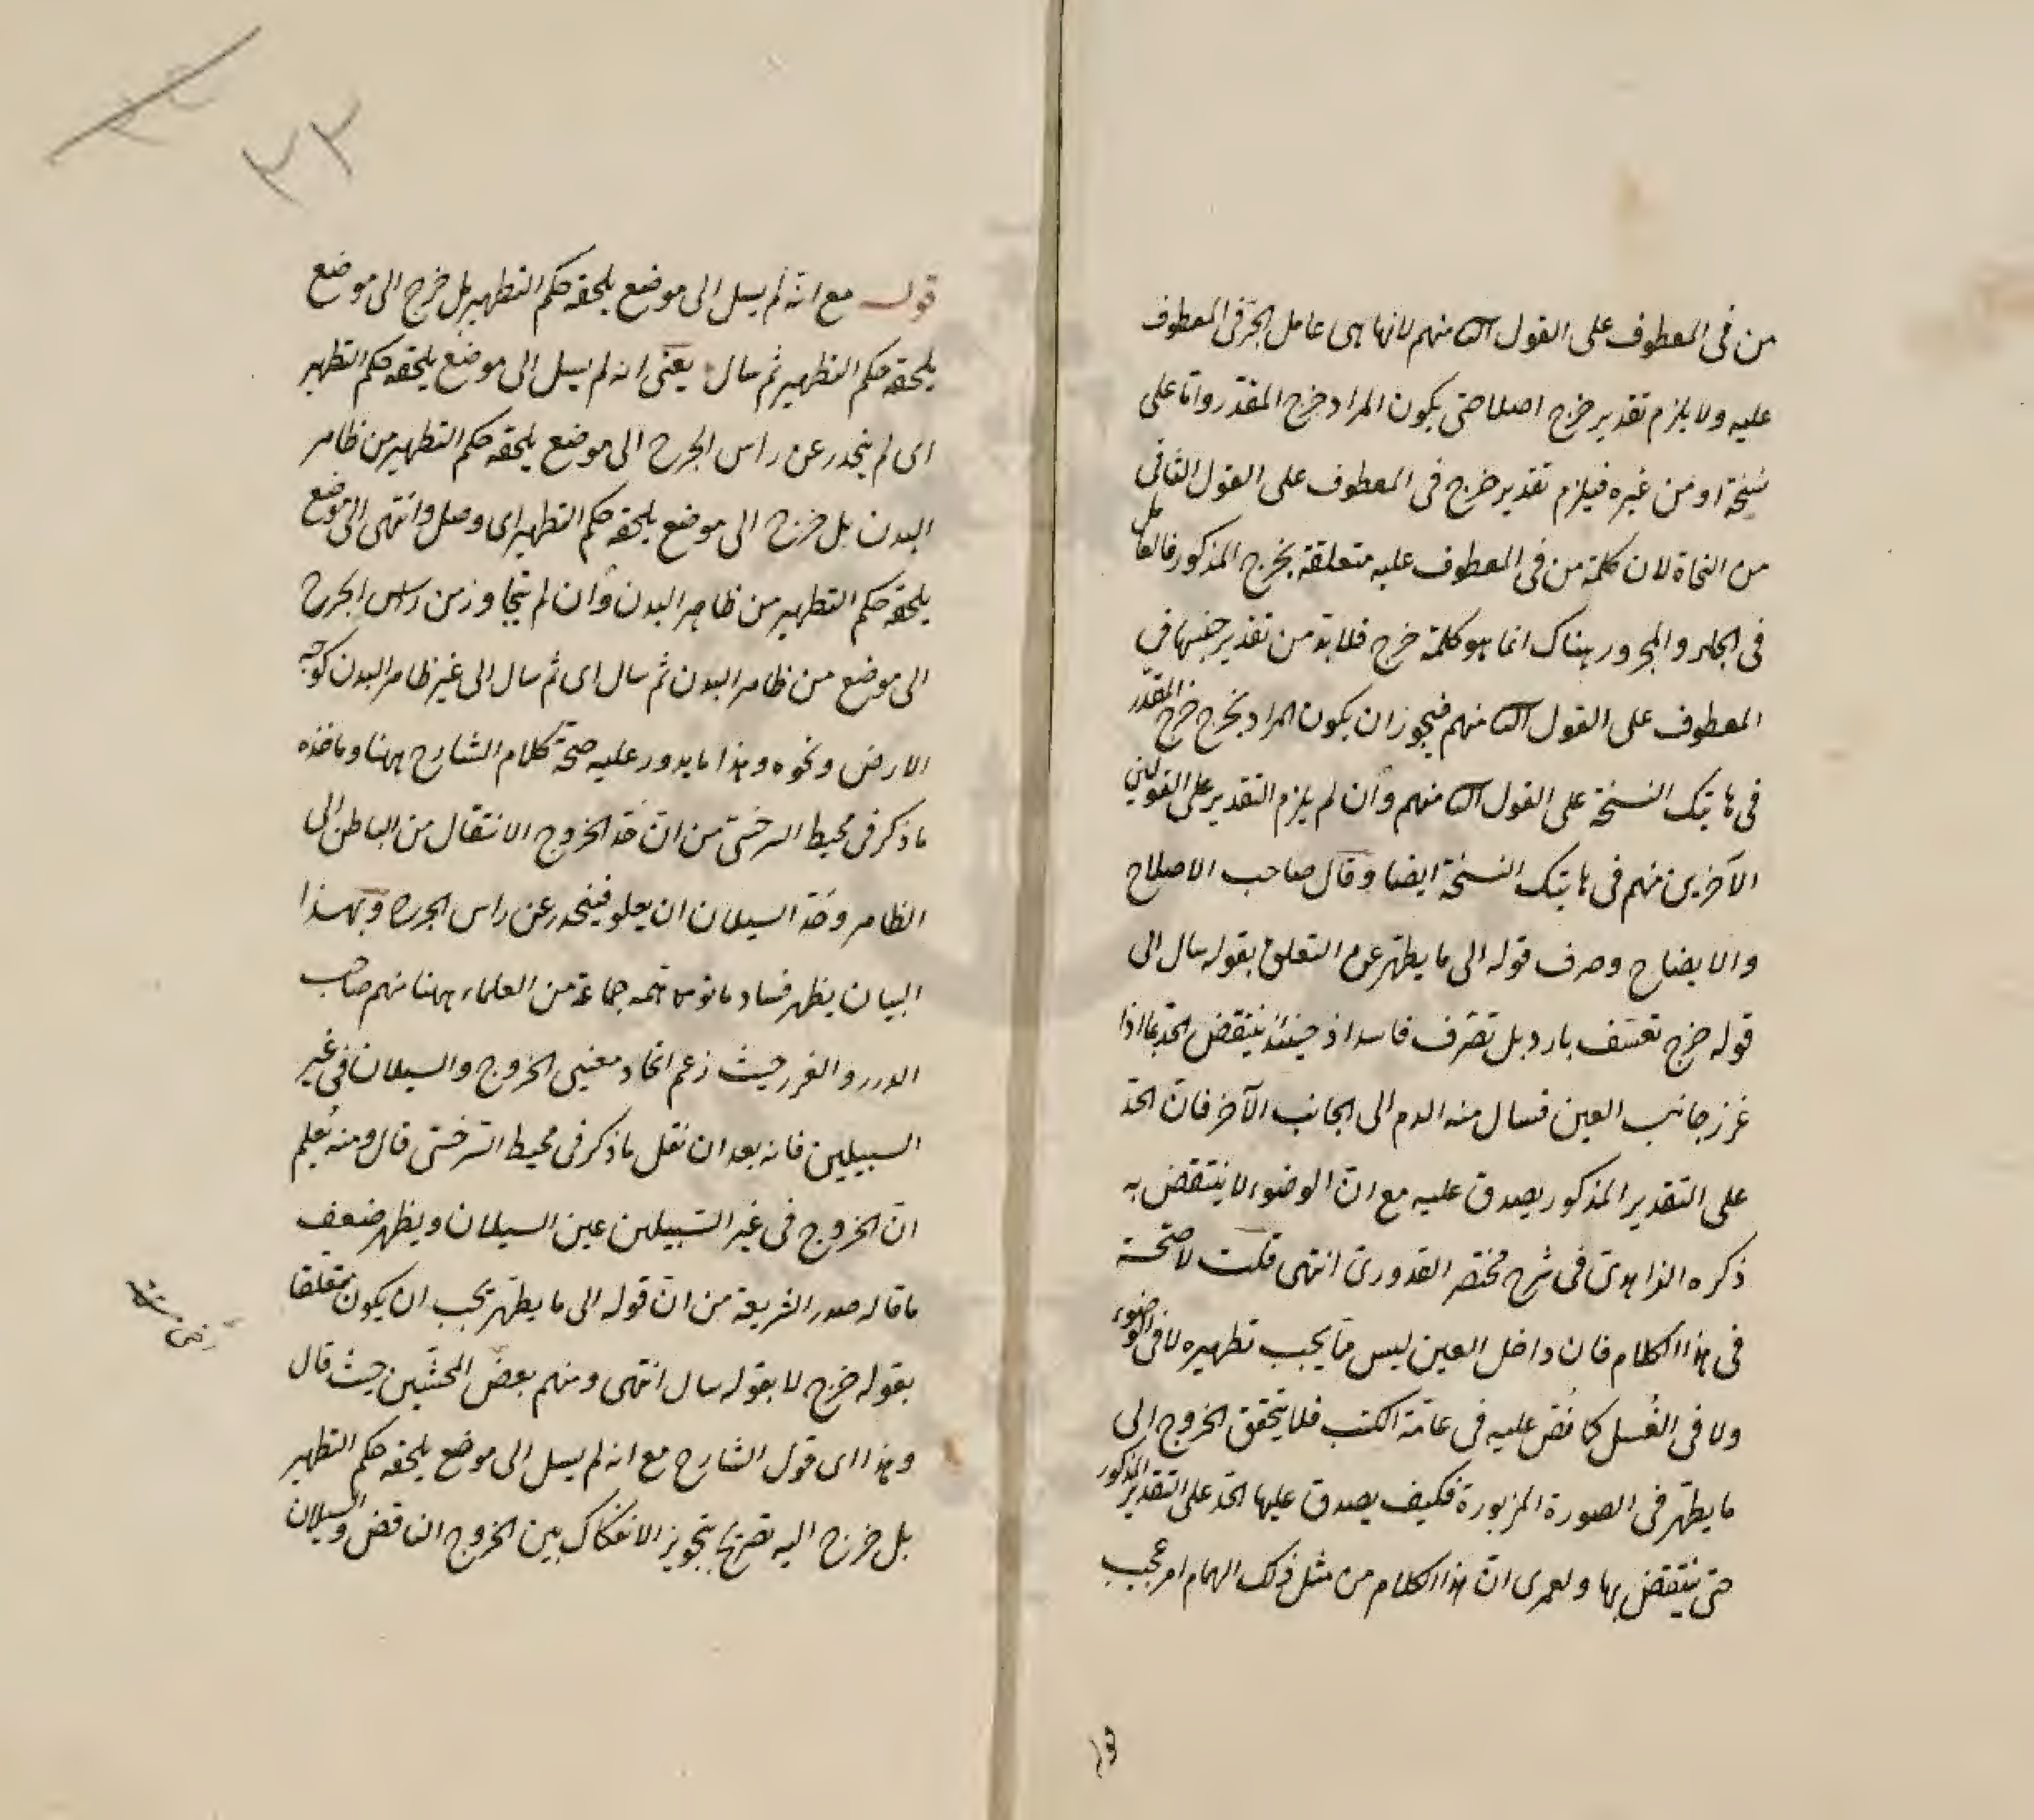 من فى المعطوف على القول الثالث منهم لانها هى عامل الجر فى المعطوف
عليه ولا يلزم تقدير خرج اصلا حتى يكون المراد خرج المقدر واما على
نسخة او من غيره فيلزم تقدير خرج فى المعطوف على القول الثانى
من النحاة لان كلمة من فى المعطوف عليه متعلقة بخرج المذكور فالعامل
فى الجار والمجرور هناك انما هو كلمة خرج فلا بد من تقدير جنسها فى
المعطوف على القول الثانى منهم فيجوز ان يكون المراد بخرج خرج المقدر
فى هاتيك النسخة على القول الثانى منهم وان لم يلزم التقدير على القولين
الآخرين منهم فى هاتيك النسخة ايضا وقال صاحب الاصلاح
والايضاح وصرف قوله الى ما يطهر عن التعلق بقوله سال الى
قوله خرج تعسف بارد بل تصرف فاسد اذ حينئذ ينتقض الحد بما اذا
غرز جانب العين فسال منه الدم الى الجانب الآخر فان الحد
على التقدير المذكور يصدق عليه مع ان الوضوء لا ينتقض به
ذكره الزاهدى فى شرح مختصر القدورى انتهى قلت لا صحة
فى هذا الكلام فان داخل العين ليس مما يجب تطهيره لا فى الوضوء
ولا فى الغسل كما نص عليه فى عامة الكتب فلا يتحقق الخروج الى
ما يطهر فى الصورة المزبورة فكيف يصدق عليها الحد على التقدير المذكور
حتى ينتقض بها ولعمرى ان هذا الكلام من مثل ذلك الهمام امر عجيب
قوله
٢٢
قوله مع انه لم يسل الى موضع يلحقه حكم التطهير بل خرج الى موضع
يلحقه حكم التطهير ثم سال يعنى انه لم يسل الى موضع يلحقه حكم التطهير
اى لم ينحدر عن راس الجرح الى موضع يلحقه حكم التطهير من ظاهر
البدن بل خرج الى موضع يلحقه حكم التطهير اى وصل وانتهى الى موضع
يلحقه حكم التطهير من ظاهر البدن وان لم يتجاوز من راس الجرح
الى موضع من ظاهر البدن ثم سال اى ثم سال الى غير ظاهر البدن كوجه
الارض ونحوه وهذا ما يدور عليه صحة كلام الشارح ههنا وماخذه
ما ذكر فى محيط السرخسى من ان حد الخروج الانتقال من الباطن الى
الظاهر وحد السيلان ان يعلو فينحدر عن راس الجرح وبهذا
البيان يظهر فساد ما توهمه جماعة من العلماء ههنا منهم صاحب
الدرر والغرر حيث زعم اتحاد معنيى الخروج والسيلان فى غير
السبيلين فانه بعد ان نقل ما ذكر فى محيط السرخسى قال ومنه يعلم
ان الخروج فى غير السبيلين عين السيلان ويظهر ضعف
ما قاله صدر الشريعة من ان قوله الى ما يطهر يجب ان يكون متعلقا
بقوله خرج لا بقوله سال انتهى ومنهم بعض المحشين حيث قال
وهذا اى قول الشارح مع انه لم يسل الى موضع يلحقه حكم التطهير
بل خرج اليه تصريح بتجويز الانفكاك بين الخروج الناقض والسيلان